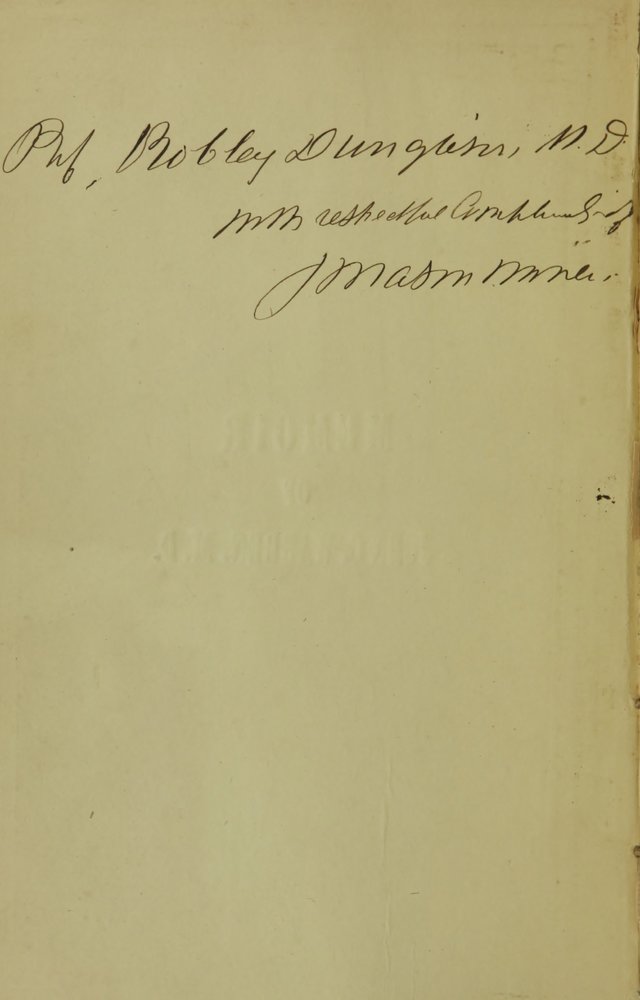 Prof, Robley Dunglison, M.D.
with respectful Compliments of
J Mason Warren.
MEMOIR
OF
M.D.